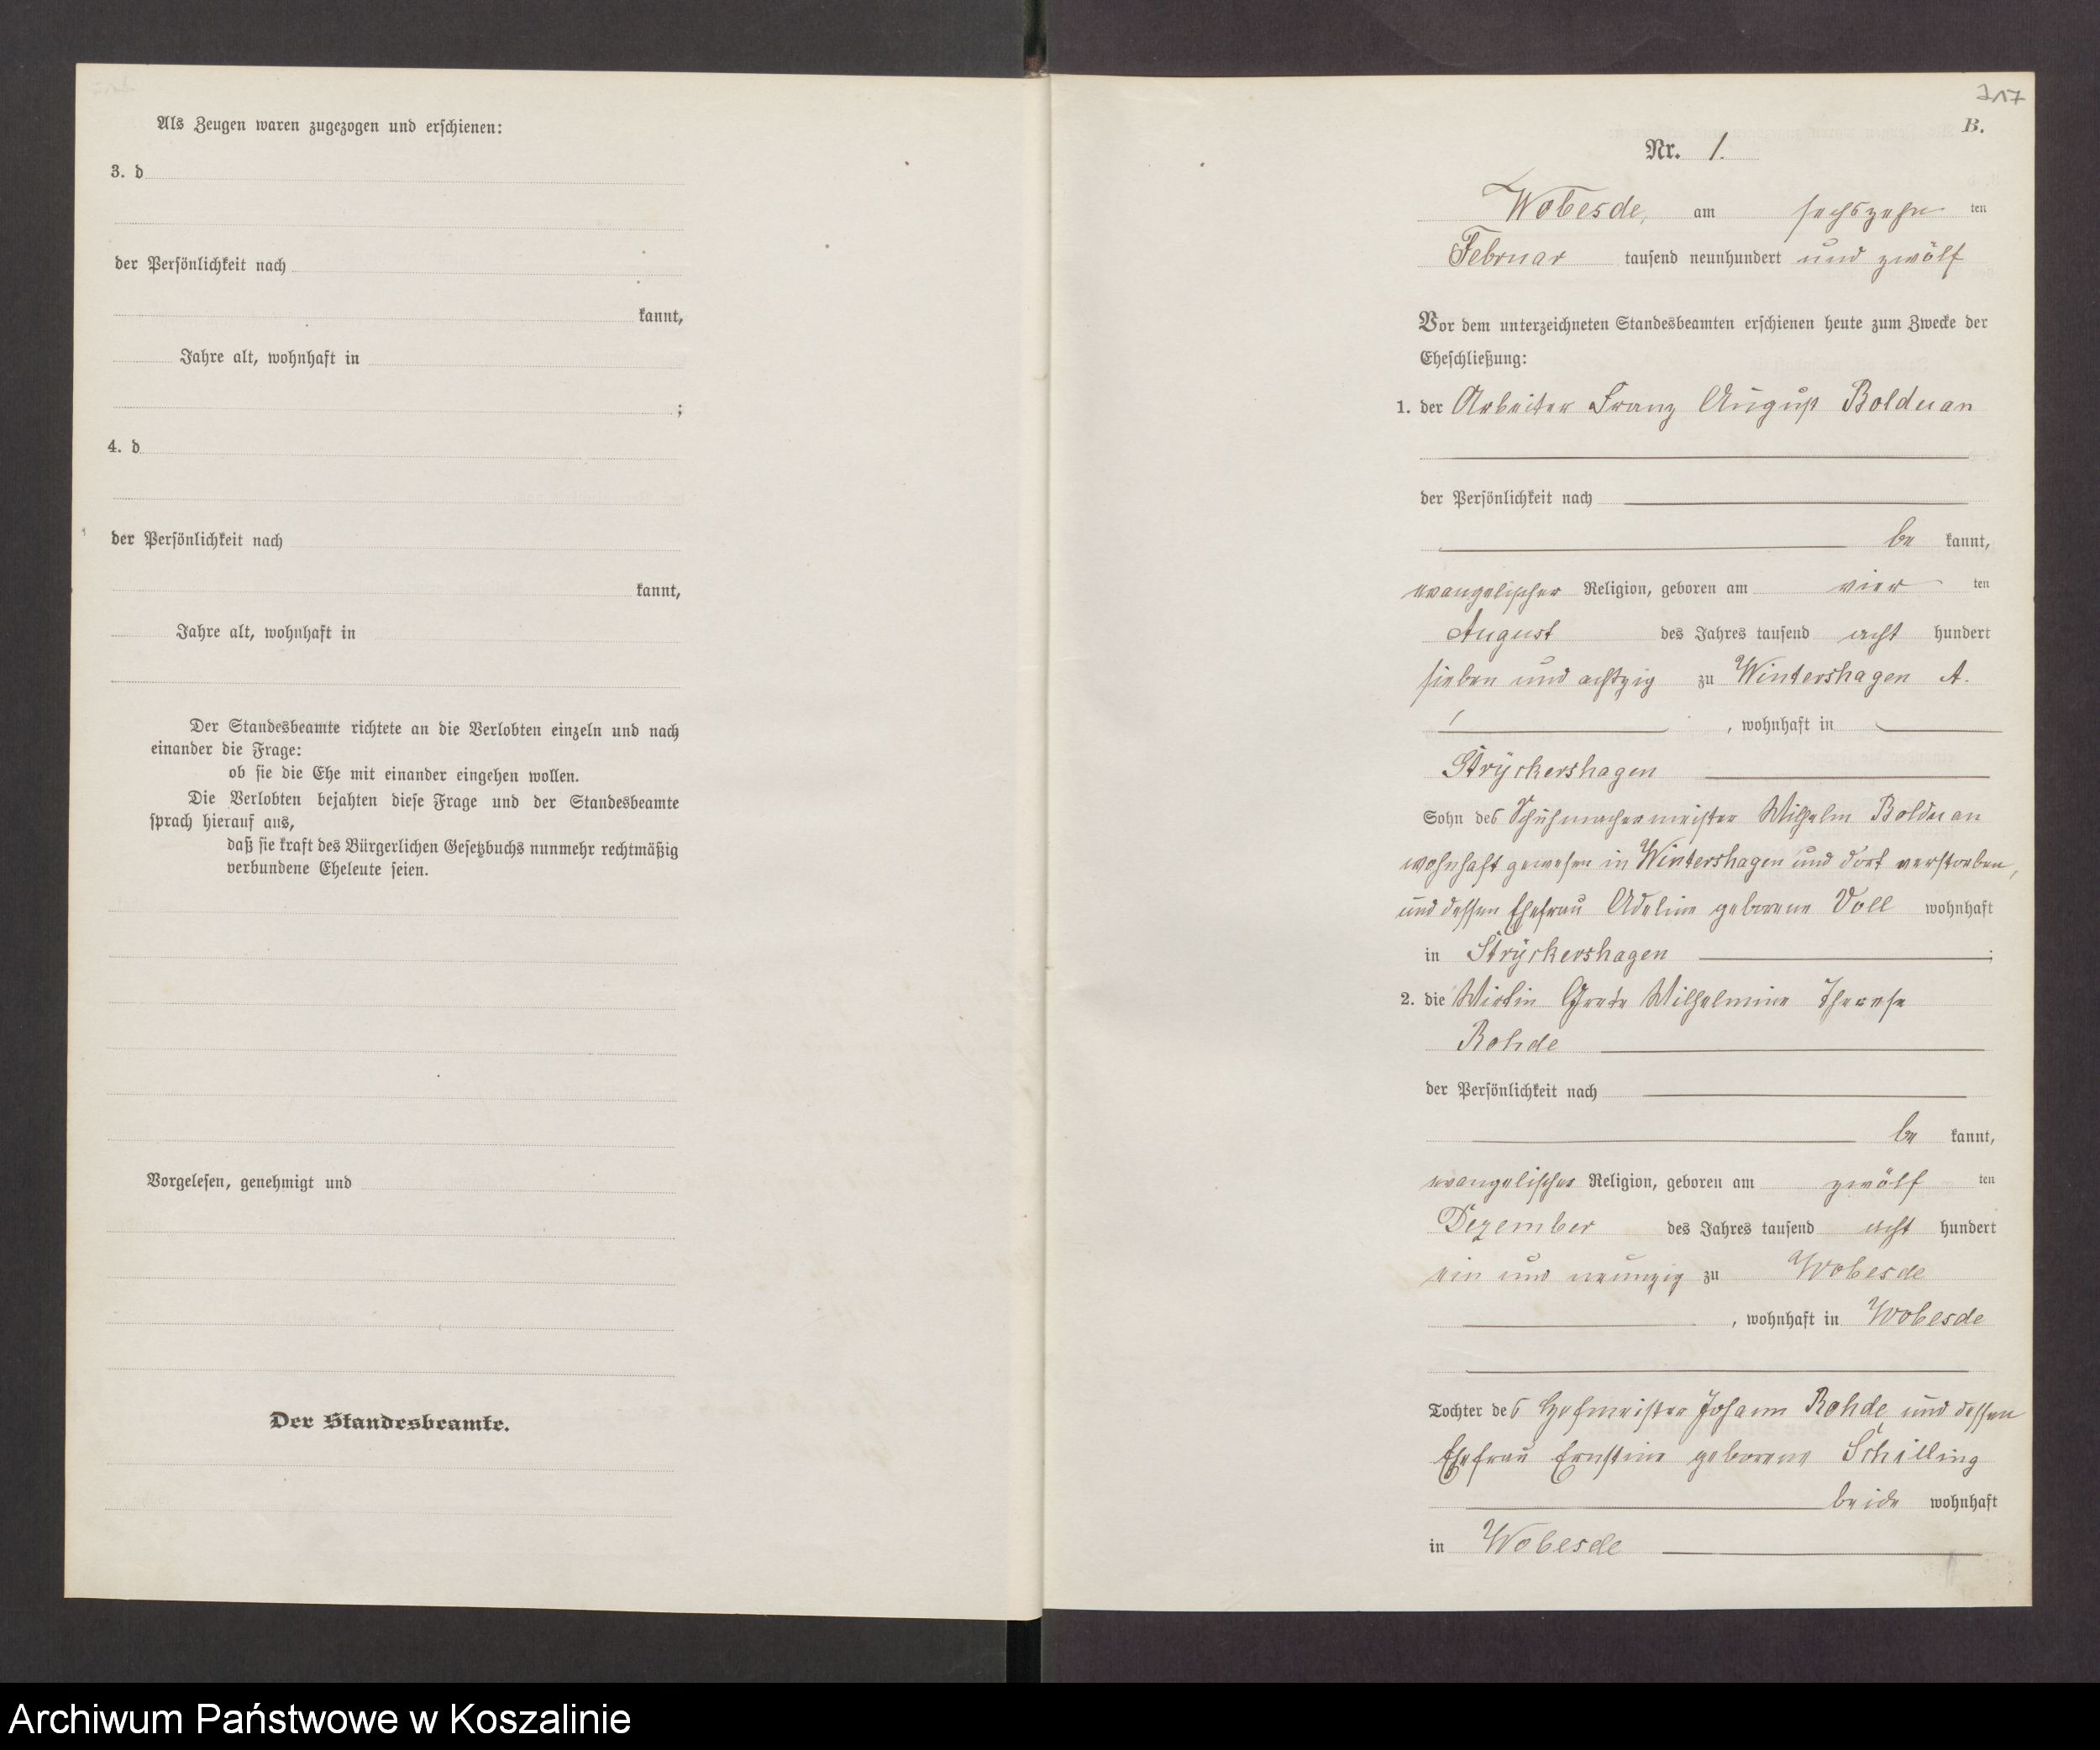 Als Zeugen waren zugezogen und erschienen:
3. d
der Persönlichkeit nach
kannt,
Jahre alt, wohnhaft in
;
4. d
der Persönlichkeit nach
kannt,
Jahre alt, wohnhaft in
Der Standesbeamte richtete an die Verlobten einzeln und nach
einander die Frage:
ob sie die Ehe mit einander eingehen wollen.
Die Verlobten bejahten diese Frage und der Standesbeamte
sprach hierauf aus,
daß sie kraft des Bürgerlichen Gesetzbuchs nunmehr rechtmäßig
verbundene Eheleute seien.
Vorgelesen, genehmigt und
Der Standesbeamte.
217
B.
Nr. 1.
Wobesde, am sechszehn ten
Februar tausend neunhundert und zwölf
Vor dem unterzeichneten Standesbeamten erschienen heute zum Zwecke der
Eheschließung:
1. der Arbeiter Franz August Bolduan
der Persönlichkeit nach
be kannt,
evangelischer Religion, geboren am vier ten
August des Jahres tausend acht hundert
sieben und achtzig zu Wintershagen A.
, wohnhaft in
Stryckershagen
Sohn des Schuhmachermeister Wilhelm Bolduan
wohnhaft gewesen in Wintershagen und dort verstorben,
und dessen Ehefrau Adeline geborene Voll wohnhaft
in Stryckershagen ;
2. die Wirtin Grete Wilhelmine Therese
Rohde
der Persönlichkeit nach
be kannt,
evangelischer Religion, geboren am zwölf ten
Dezember des Jahres tausend acht hundert
ein und neunzig zu Wobesde
, wohnhaft in Wobesde
Tochter des Hofmeister Johann Rohde und dessen
Ehefrau Ernstine geborene Schilling
beide wohnhaft
in Wobesde
Archiwum Państwowe w Koszalinie